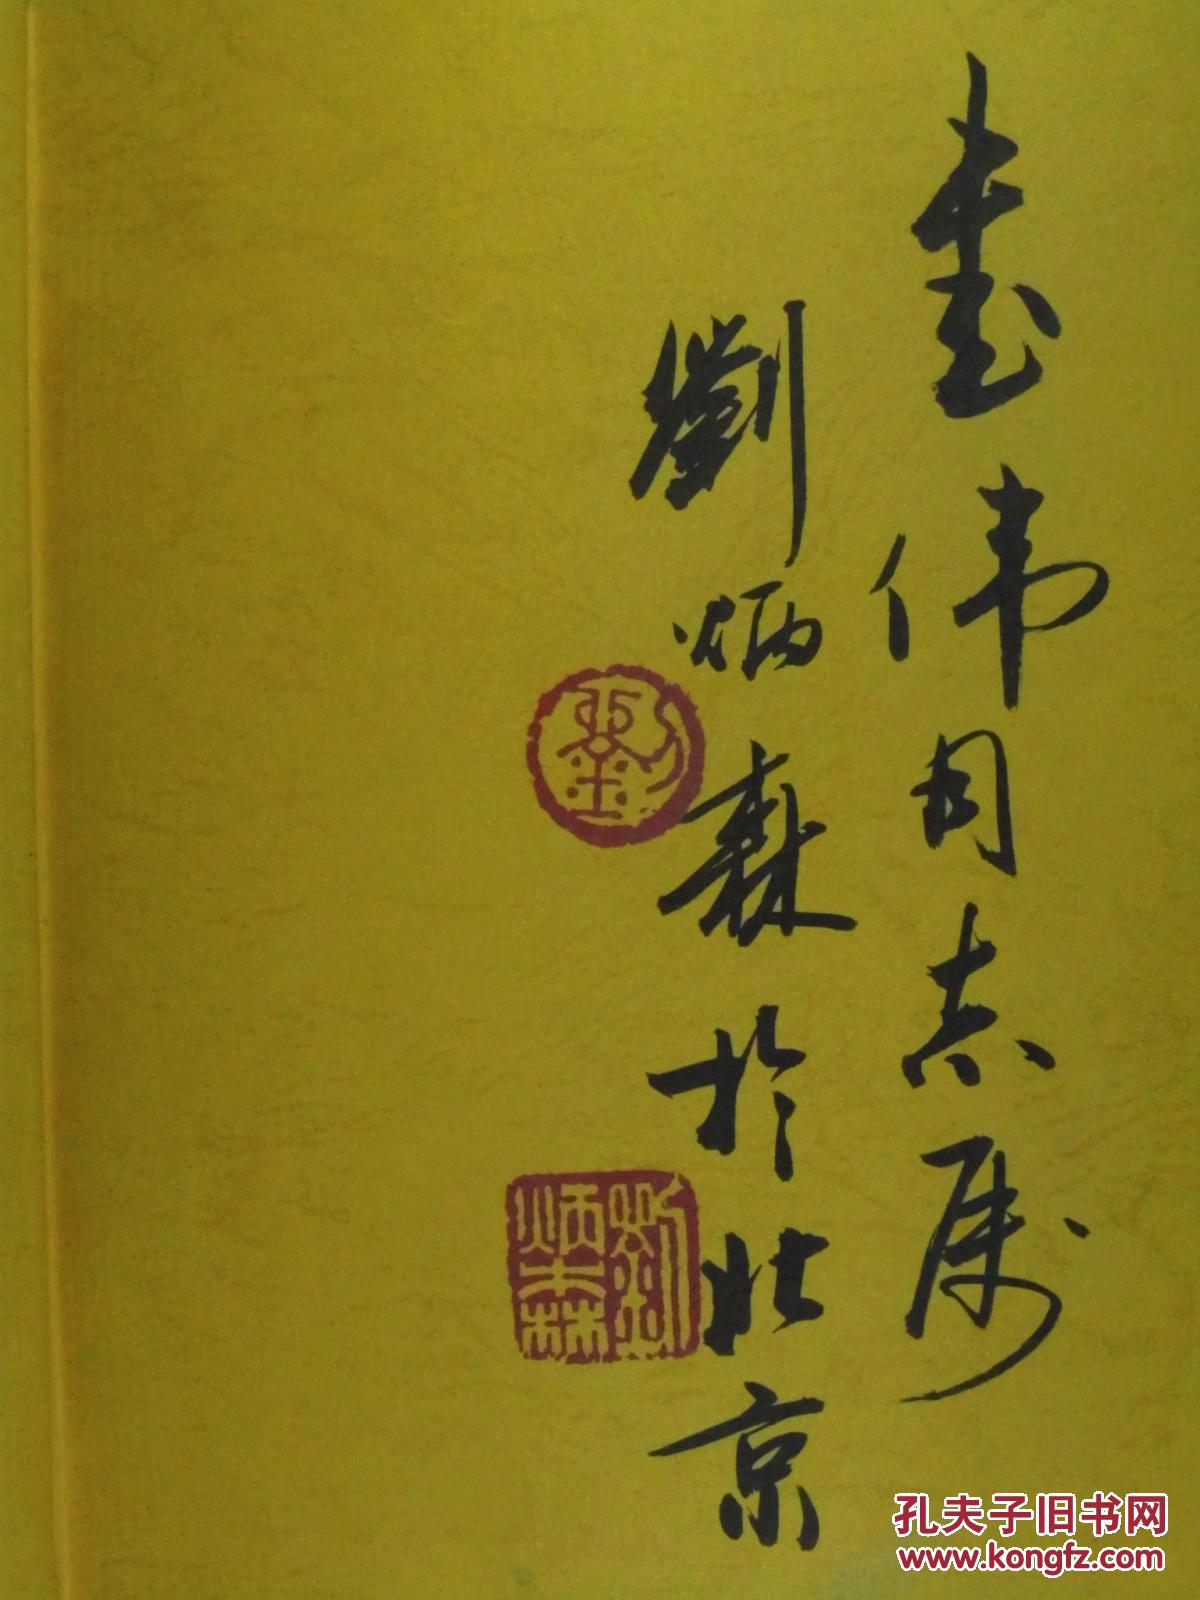 伟同志属
劉炳森於北京
劉
劉炳森
孔夫子旧书网
www.kongfz.com